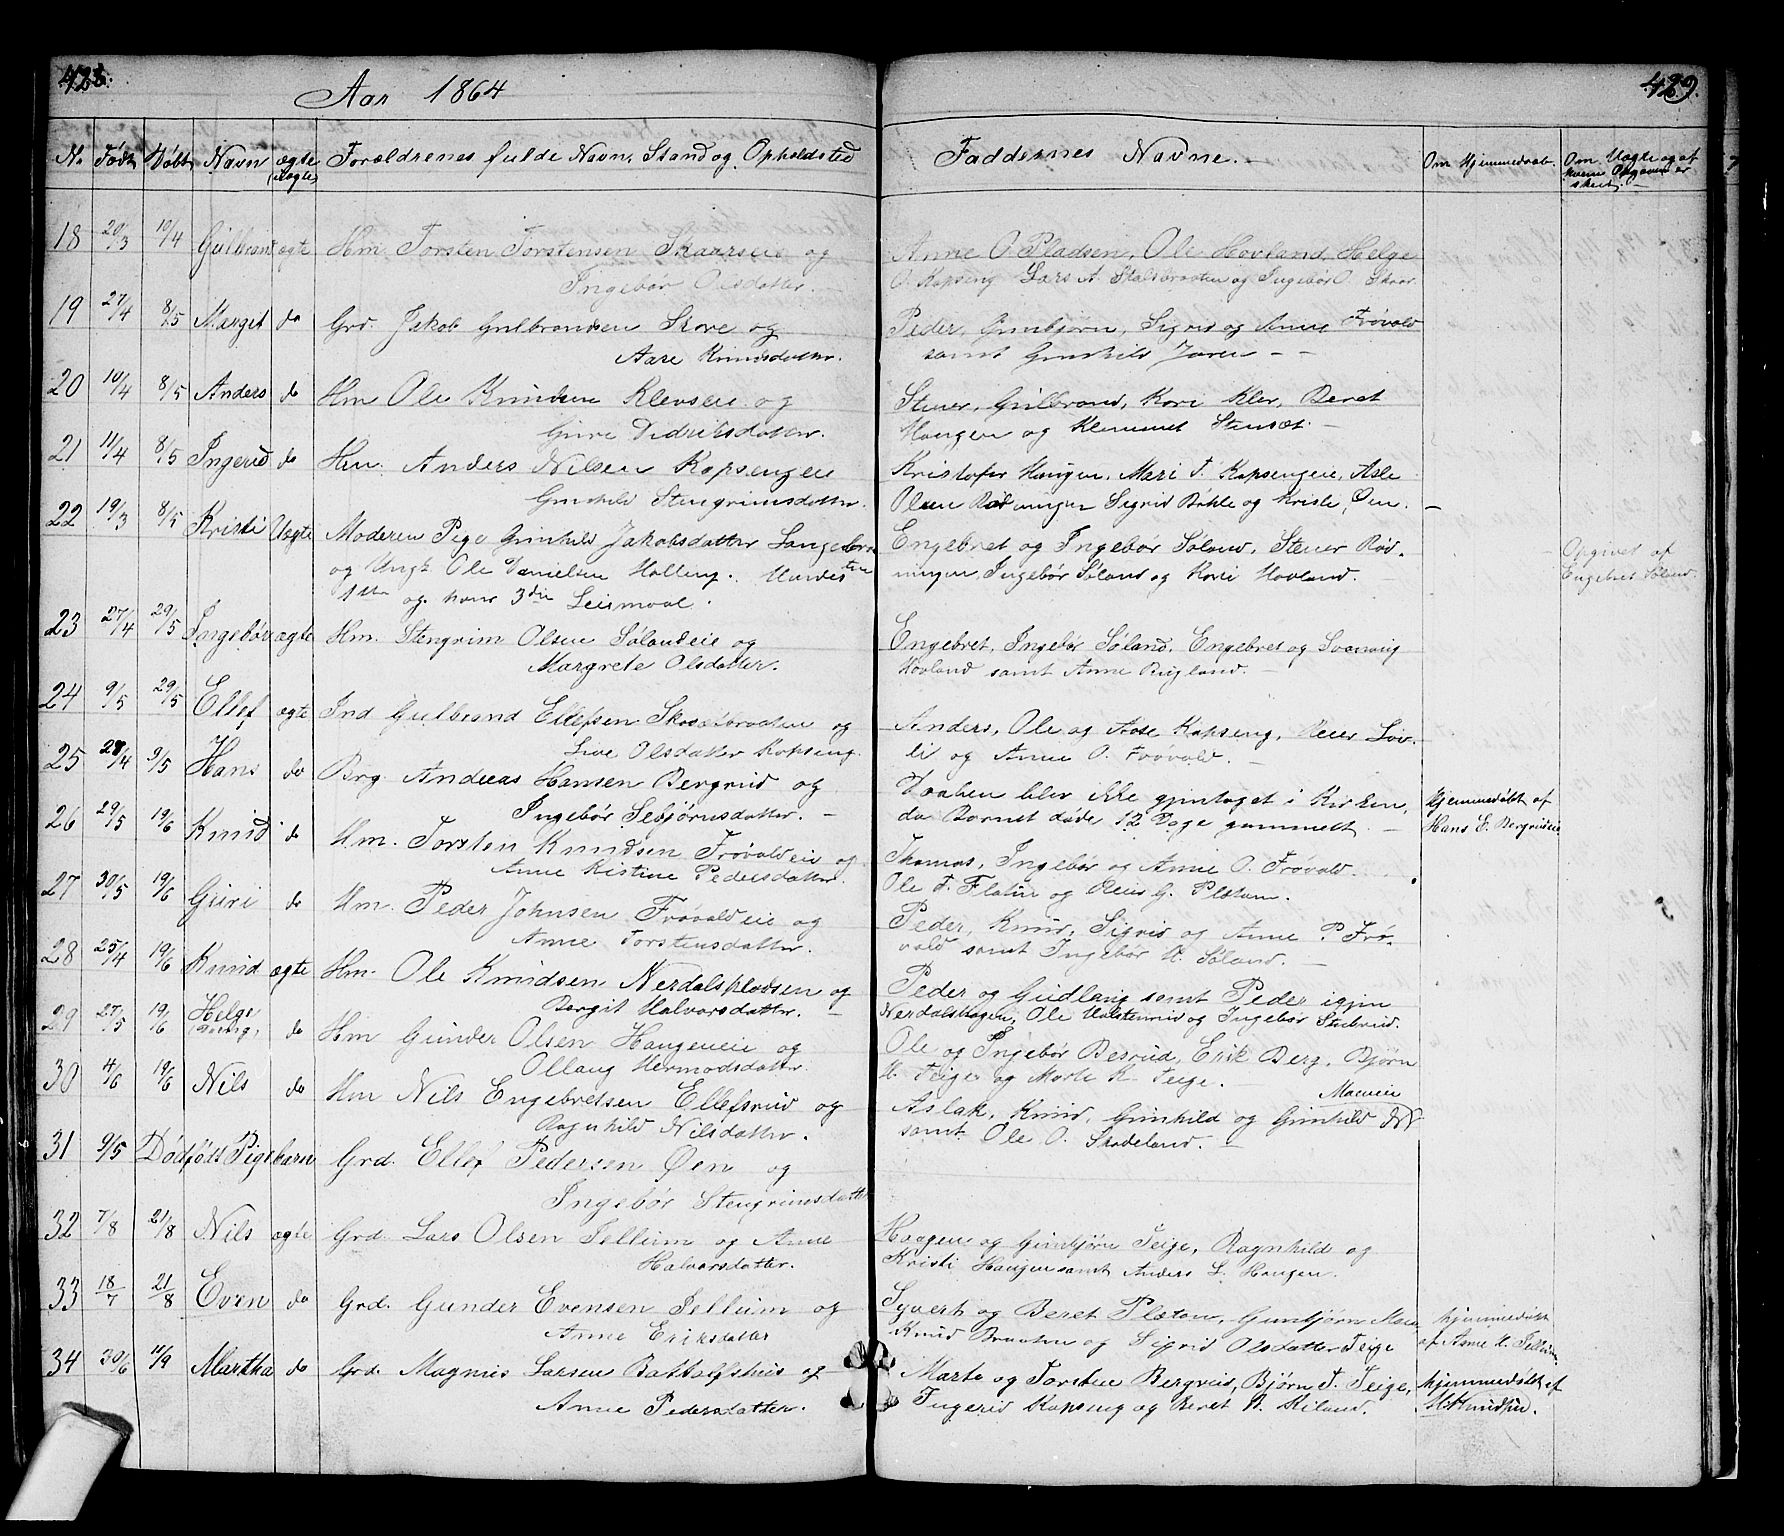 428.
Aar 1864
No Født Døbt Navn ægte (uægte) Forældrenes fulde Navn, Stand og Opholdsted
18 20/3 10/4 Gulbrand ægte Hm Torsten Torstensen Skaarseie og
Ingebør Olsdatter. -
19 27/4 8/5 Marget do Grd. Jakob Gulbrandsen Skove og
Aase Knudsdatter.
20 10/4 8/5 Anders do Hm Ole Knudsen Klevseie og
Guro Didriksdatter.
21 11/4 8/5 Ingerid do Hm. Anders Nilsen Kopsengeie
Gunhild Stengrimsdatter.
22 19/3 8/5 Kristi Uægte Moderen Pige Gunhild Jakobsdatter
og Ungk Ole Danielsen Halling. Hendes
1ste og hans 3die Leiermaal.
23 27/4 29/5 Ingebør ægte Hm. Stengrim Olsen Sølandseie og
Margrete Olsdatter.
24 9/5 29/5 Ellef ægte Ind Gulbrand Ellefsen og
Live Olsdatter Kopseng
25 28/4 9/5 Hans do Brg. Andreas Hansen Bergrud og
Ingebør Sebjørnsdatter. -
26 29/5 19/6 Knud do Hm. Torsten Knudsen Frøvoldeie og
Anne Kistine Pedersdatter.
27 30/5 19/6 Guri do Hm. Peder Johnsen Frøvoldeie og
Anne Torstensdatter.
28 25/4 19/6 Knud ægte Hm. Ole Knudsen Nerdalspladsen og
Bergit Halvorsdatter. -
29 27/5 19/6 Helge do Hm Gunder Olsen Haugeneie og
Ollaug Hermodsdatter
30 4/6 19/6 Nils do Hm Nils Engebretsen Ellefsrud og
Ragnhild Nilsdatter.
31 9/5 Dødfødt Pigebarn Grd. Ellef Pedersen Øen og
Ingebør Stengrimsdatter
32 7/8 21/8 Nils ægte Grd. Lars Olsen Jelleim og Anne
Halvorsdatter.
33 18/7 21/8 Even do Grd. Gunder Evensen Jelleim og
Anne Eriksdatter
34 30/6 11/9 Martha do Grd. Magnus Larsen Battalfshus og
Anne Pedersdatter.
429.
Faddernes Navne. Om Hjemmedaab Om Uægte og af hvem Opgaven er skeet. -
Anne O. Pladsen, Ole Hovland, Helge
O. Kopseng Lars A. Stalsbraaten og Ingebør O. Skaar.
Peder, Gunbjørn, Sigrid og Anne Frøvold
samt Gunhild Jøren - -
Stener, Gulbrand, Kari Klev, Beret
Haugen og Klemmet Stensæt. -
Kristofer Haugen, Mari T. Kopsengeie, Asle
Olsen Rødningen Sigrid Bøhle og Kristi Øen. -
Engebret og Ingebør Søland, Stener Rød-
ningen, Ingebør Søland og Kari Hovland. - Opgivet af
Engebret Søland.
Engebret, Ingebør Søland, Engebret og
Hovland samt Anne Rugland. -
Anders, Ole og Aase Kopseng, Reier Løv-
li og Anne O. Frøvold. -
Daaben blev ikke gjentaget i Kirken,
da Barnet døde 12 Dage gammelt. - Hjemmedøbt af
Hans E. Bergrudeie
Thomas, Ingebør og Anne O. Frøvold.
Ole T. Flatin og Reier G. Pløtan.
Peder, Knud, Sigrid og Anne P. Frø-
vold samt Ingebør K. Søland. -
Peder og Gudlaug samt Peder igjen
Nerdalshagen, Ole Halstenrud og Ingebør Stubrud.
Ole og Ingebør Besrud, Erik Berg, Bjørn
H. Teige og Marte K. Teige. -
Aslak, Knud, Gunhild og Gunhild
samt Ole O. Skadeland. -
Haagen og Gunbjørn Teige, Ragnhild og
Kristi Haugen samt Anders L. Haugen.
Syvert og Beret Pløtan, Gunbjørn
Knud Braaten og Sigrid Olsdatter Teige hjemmedøbt
af Anne H. Jelleim
Marte og Torsten Bergrud, Bjørn T. Teige,
Ingerid Kopseng og Beret A. Kiland. hjemmedøbt af
H. Knudsen.